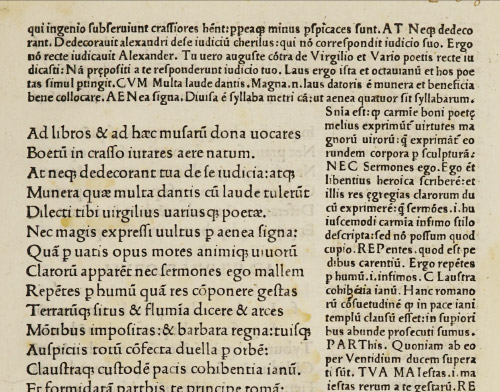 qui ingenio subseruiunt crassiores hēnt: ppeaq̃ minus pspicaces sunt. AT Neq̃ dedeco
rant. Dedecorauit alexandri de se iudiciū cherilus: qui nō correspondit iudicio suo. Ergo
nō recte iudicauit Alexander. Tu uero auguste cōtra de Virgilio et Vario poetis recte iu
dicasti: Nā prępositi a te responderunt iudicio tuo. Laus ergo ista et octauianū et hos poe
tas simul ptingit. CVM Multa laude dantis. Magna. n. laus datoris ē munera et beneficia
bene collocare. AENea signa. Diuisa ē syllaba metri cā: ut aenea quatuor sit syllabarum.
Ad libros & ad hæc musarū dona uocares
Boetū in crasso iurares aere natum.
At neq̃ dedecorant tua de se iudicia: atq̃
Munera quæ multa dantis cū laude tulerūt
Dilecti tibi uirgilius uariusq̃ poetæ.
Nec magis expressi uultus p aenea signa:
Quā p uatis opus mores animiq̃ uiuorū
Clarorū apparēt nec sermones ego mallem
Repētes p humū quā res cōponere gestas
Terrarūq̃ situs & flumīa dicere & arces
Mōtibus impositas: & barbara regna: tuisq̃
Auspiciis totū cōfecta duella p orbē:
Claustraq̃ custodē pacis cohibentia ianū.
Et formidatā parthis te principe romā:
Snia est: q̃ carmīe boni poetę
melius exprimūt uirtutes ma
gnorū uirorū: q̃ exprimāt eo
rundem corpora p sculpturā:
NEC Sermones ego. Ego et
libentius heroica scriberē: et
illis res egregias clarorum du
cū exprimerē: q̃ sermōes. i. hu
iuscemodi carmīa infimo stilo
descripta: sed nō possum quod
cupio. REPentes. quod est pe
dibus carentiū. Ergo repētes
p humū. i. infimos. C Laustra
cohibētia ianū. Hanc romano
rū cōsuetudinē q̃ in pace iani
templū clausū esset: in superi
bus abunde prosecuti sumus.
PARThis. Quoniam ab eo
per Ventidium ducem supera
ti sūt. TVA MAIestas. i. ma
iestas rerum a te gestarū. RE